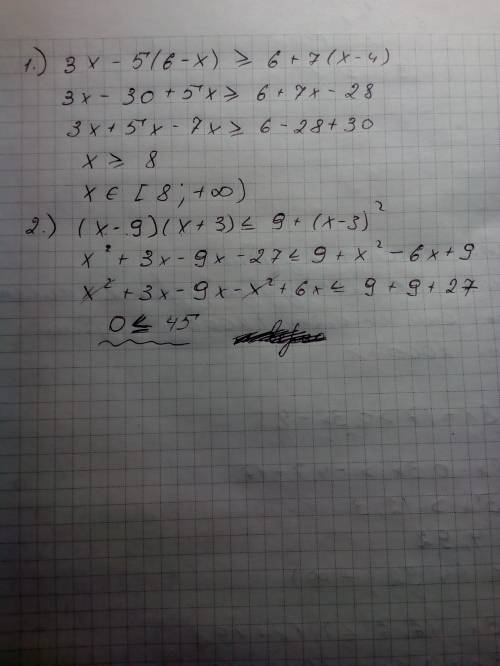 1.) 3x - 5(6-x) ≥ 6+7(x-4)
3x - 30 + 5x ≥ 6+7x-28
3x+5x-7x ≥ 6-28+30
x ≥ 8
x ∈ [8; +∞)
2.) (x-9)(x+3) ≤ 9+(x-3)²
x² + 3x - 9x - 27 ≤ 9+x² - 6x+9
x² + 3x - 9x - x² + 6x ≤ 9+9+27
0 ≤ 45